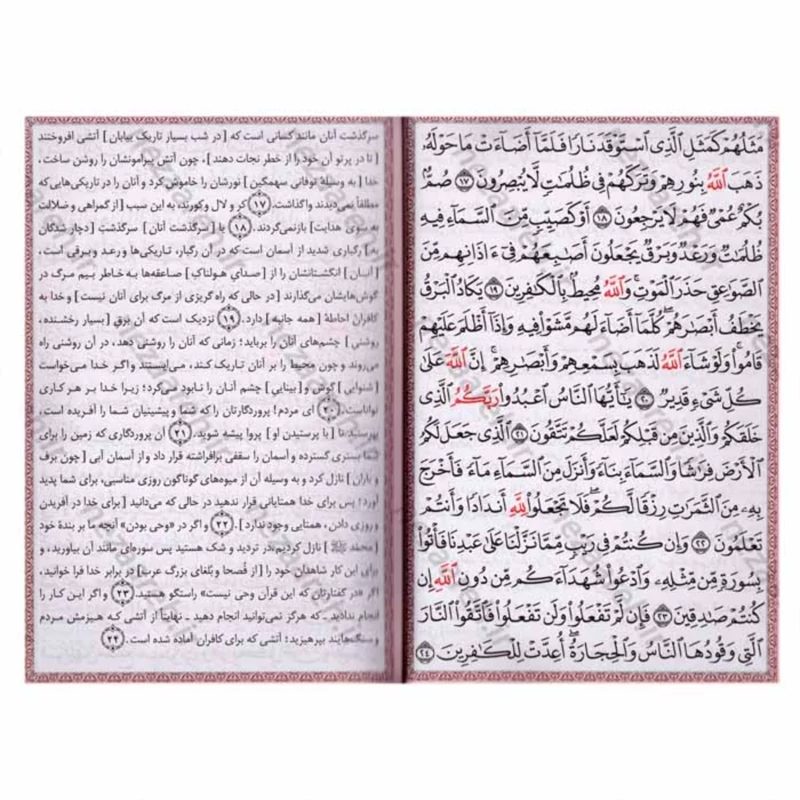 مَثَلُهُمْ كَمَثَلِ ٱلَّذِى ٱسْتَوْقَدَ نَارًا فَلَمَّآ أَضَآءَتْ مَا حَوْلَهُۥ
ذَهَبَ ٱللَّهُ بِنُورِهِمْ وَتَرَكَهُمْ فِى ظُلُمَٰتٍ لَّا يُبْصِرُونَ ١٧ صُمٌّۢ
بُكْمٌ عُمْىٌ فَهُمْ لَا يَرْجِعُونَ ١٨ أَوْ كَصَيِّبٍ مِّنَ ٱلسَّمَآءِ فِيهِ
ظُلُمَٰتٌ وَرَعْدٌ وَبَرْقٌ يَجْعَلُونَ أَصَٰبِعَهُمْ فِىٓ ءَاذَانِهِم مِّنَ
ٱلصَّوَٰعِقِ حَذَرَ ٱلْمَوْتِ ۚ وَٱللَّهُ مُحِيطٌۢ بِٱلْكَٰفِرِينَ ١٩ يَكَادُ ٱلْبَرْقُ
يَخْطَفُ أَبْصَٰرَهُمْ ۖ كُلَّمَآ أَضَآءَ لَهُم مَّشَوْا۟ فِيهِ وَإِذَآ أَظْلَمَ عَلَيْهِمْ
قَامُوا۟ ۚ وَلَوْ شَآءَ ٱللَّهُ لَذَهَبَ بِسَمْعِهِمْ وَأَبْصَٰرِهِمْ ۚ إِنَّ ٱللَّهَ عَلَىٰ
كُلِّ شَىْءٍ قَدِيرٌ ٢٠ يَٰٓأَيُّهَا ٱلنَّاسُ ٱعْبُدُوا۟ رَبَّكُمُ ٱلَّذِى
خَلَقَكُمْ وَٱلَّذِينَ مِن قَبْلِكُمْ لَعَلَّكُمْ تَتَّقُونَ ٢١ ٱلَّذِى جَعَلَ لَكُمُ
ٱلْأَرْضَ فِرَٰشًا وَٱلسَّمَآءَ بِنَآءً وَأَنزَلَ مِنَ ٱلسَّمَآءِ مَآءً فَأَخْرَجَ
بِهِۦ مِنَ ٱلثَّمَرَٰتِ رِزْقًا لَّكُمْ ۖ فَلَا تَجْعَلُوا۟ لِلَّهِ أَندَادًا وَأَنتُمْ
تَعْلَمُونَ ٢٢ وَإِن كُنتُمْ فِى رَيْبٍ مِّمَّا نَزَّلْنَا عَلَىٰ عَبْدِنَا فَأْتُوا۟
بِسُورَةٍ مِّن مِّثْلِهِۦ وَٱدْعُوا۟ شُهَدَآءَكُم مِّن دُونِ ٱللَّهِ إِن
كُنتُمْ صَٰدِقِينَ ٢٣ فَإِن لَّمْ تَفْعَلُوا۟ وَلَن تَفْعَلُوا۟ فَٱتَّقُوا۟ ٱلنَّارَ
ٱلَّتِى وَقُودُهَا ٱلنَّاسُ وَٱلْحِجَارَةُ ۖ أُعِدَّتْ لِلْكَٰفِرِينَ ٢٤
سرگذشت آنان مانند کسانی است که [در شب بسیار تاریک بیابان] آتشی افروختند
[تا در پرتو آن خود را از خطر نجات دهند]، چون آتش پیرامونشان را روشن ساخت،
خدا [به وسیلهٔ توفانی سهمگین] نورشان را خاموش کرد و آنان را در تاریکی‌هایی که
مطلقاً نمی‌دیدند واگذاشت. ۱۷ کر و لال و کورند، به این سبب [از گمراهی و ضلالت
به سوی هدایت] بازنمی‌گردند. ۱۸ یا [سرگذشت آنان] سرگذشتِ [دچار شدگان
به] رگباری شدید از آسمان است که در آن رگبار، تاریکی‌ها و رعد و برقی است،
[آنان] انگشتانشان را از [صدای هولناکِ] صاعقه‌ها به خاطر بیم مرگ در
گوش‌هایشان می‌گذارند [در حالی که راه گریزی از مرگ برای آنان نیست] و خدا به
کافران احاطهٔ [همه جانبه] دارد. ۱۹ نزدیک است که آن برق [بسیار رخشنده،
روشنی] چشم‌های آنان را برباید؛ زمانی که آنان را روشنی دهد، در آن روشنی راه
می‌روند و چون محیط را بر آنان تاریک کند، می‌ایستند و اگر خدا می‌خواست
[شنوایی] گوش و [بینایی] چشم آنان را نابود می‌کرد؛ زیرا خدا بر هر کاری
تواناست. ۲۰ ای مردم! پروردگارتان را که شما و پیشینیان شما را آفریده است،
بپرستید تا [با پرستیدن او] پروا پیشه شوید. ۲۱ آن پروردگاری که زمین را برای
شما بستری گسترده و آسمان را سقفی برافراشته قرار داد و از آسمان آبی [چون برف
و باران] نازل کرد و به وسیله آن از میوه‌های گوناگون روزی مناسبی، برای شما پدید
آورد؛ پس برای خدا همتایانی قرار ندهید در حالی که می‌دانید [برای خدا در آفریدن
و روزی دادن، همتایی وجود ندارد]. ۲۲ و اگر در «وحی بودن» آنچه ما بر بندهٔ خود
[محمّد ﷺ] نازل کردیم، در تردید و شک هستید پس سوره‌ای مانند آن بیاورید، و
برای این کار شاهدان خود را [از فُصحا و بُلغای بزرگ عرب] در برابر خدا فرا خوانید،
اگر [در گفتارتان که این قرآن وحی نیست] راستگو هستید. ۲۳ و اگر این کار را
انجام ندادید ـ که هرگز نمی‌توانید انجام دهید ـ نهایتاً از آتشی که هیزمش مردم
و سنگ‌هایند بپرهیزید؛ آتشی که برای کافران آماده شده است. ۲۴